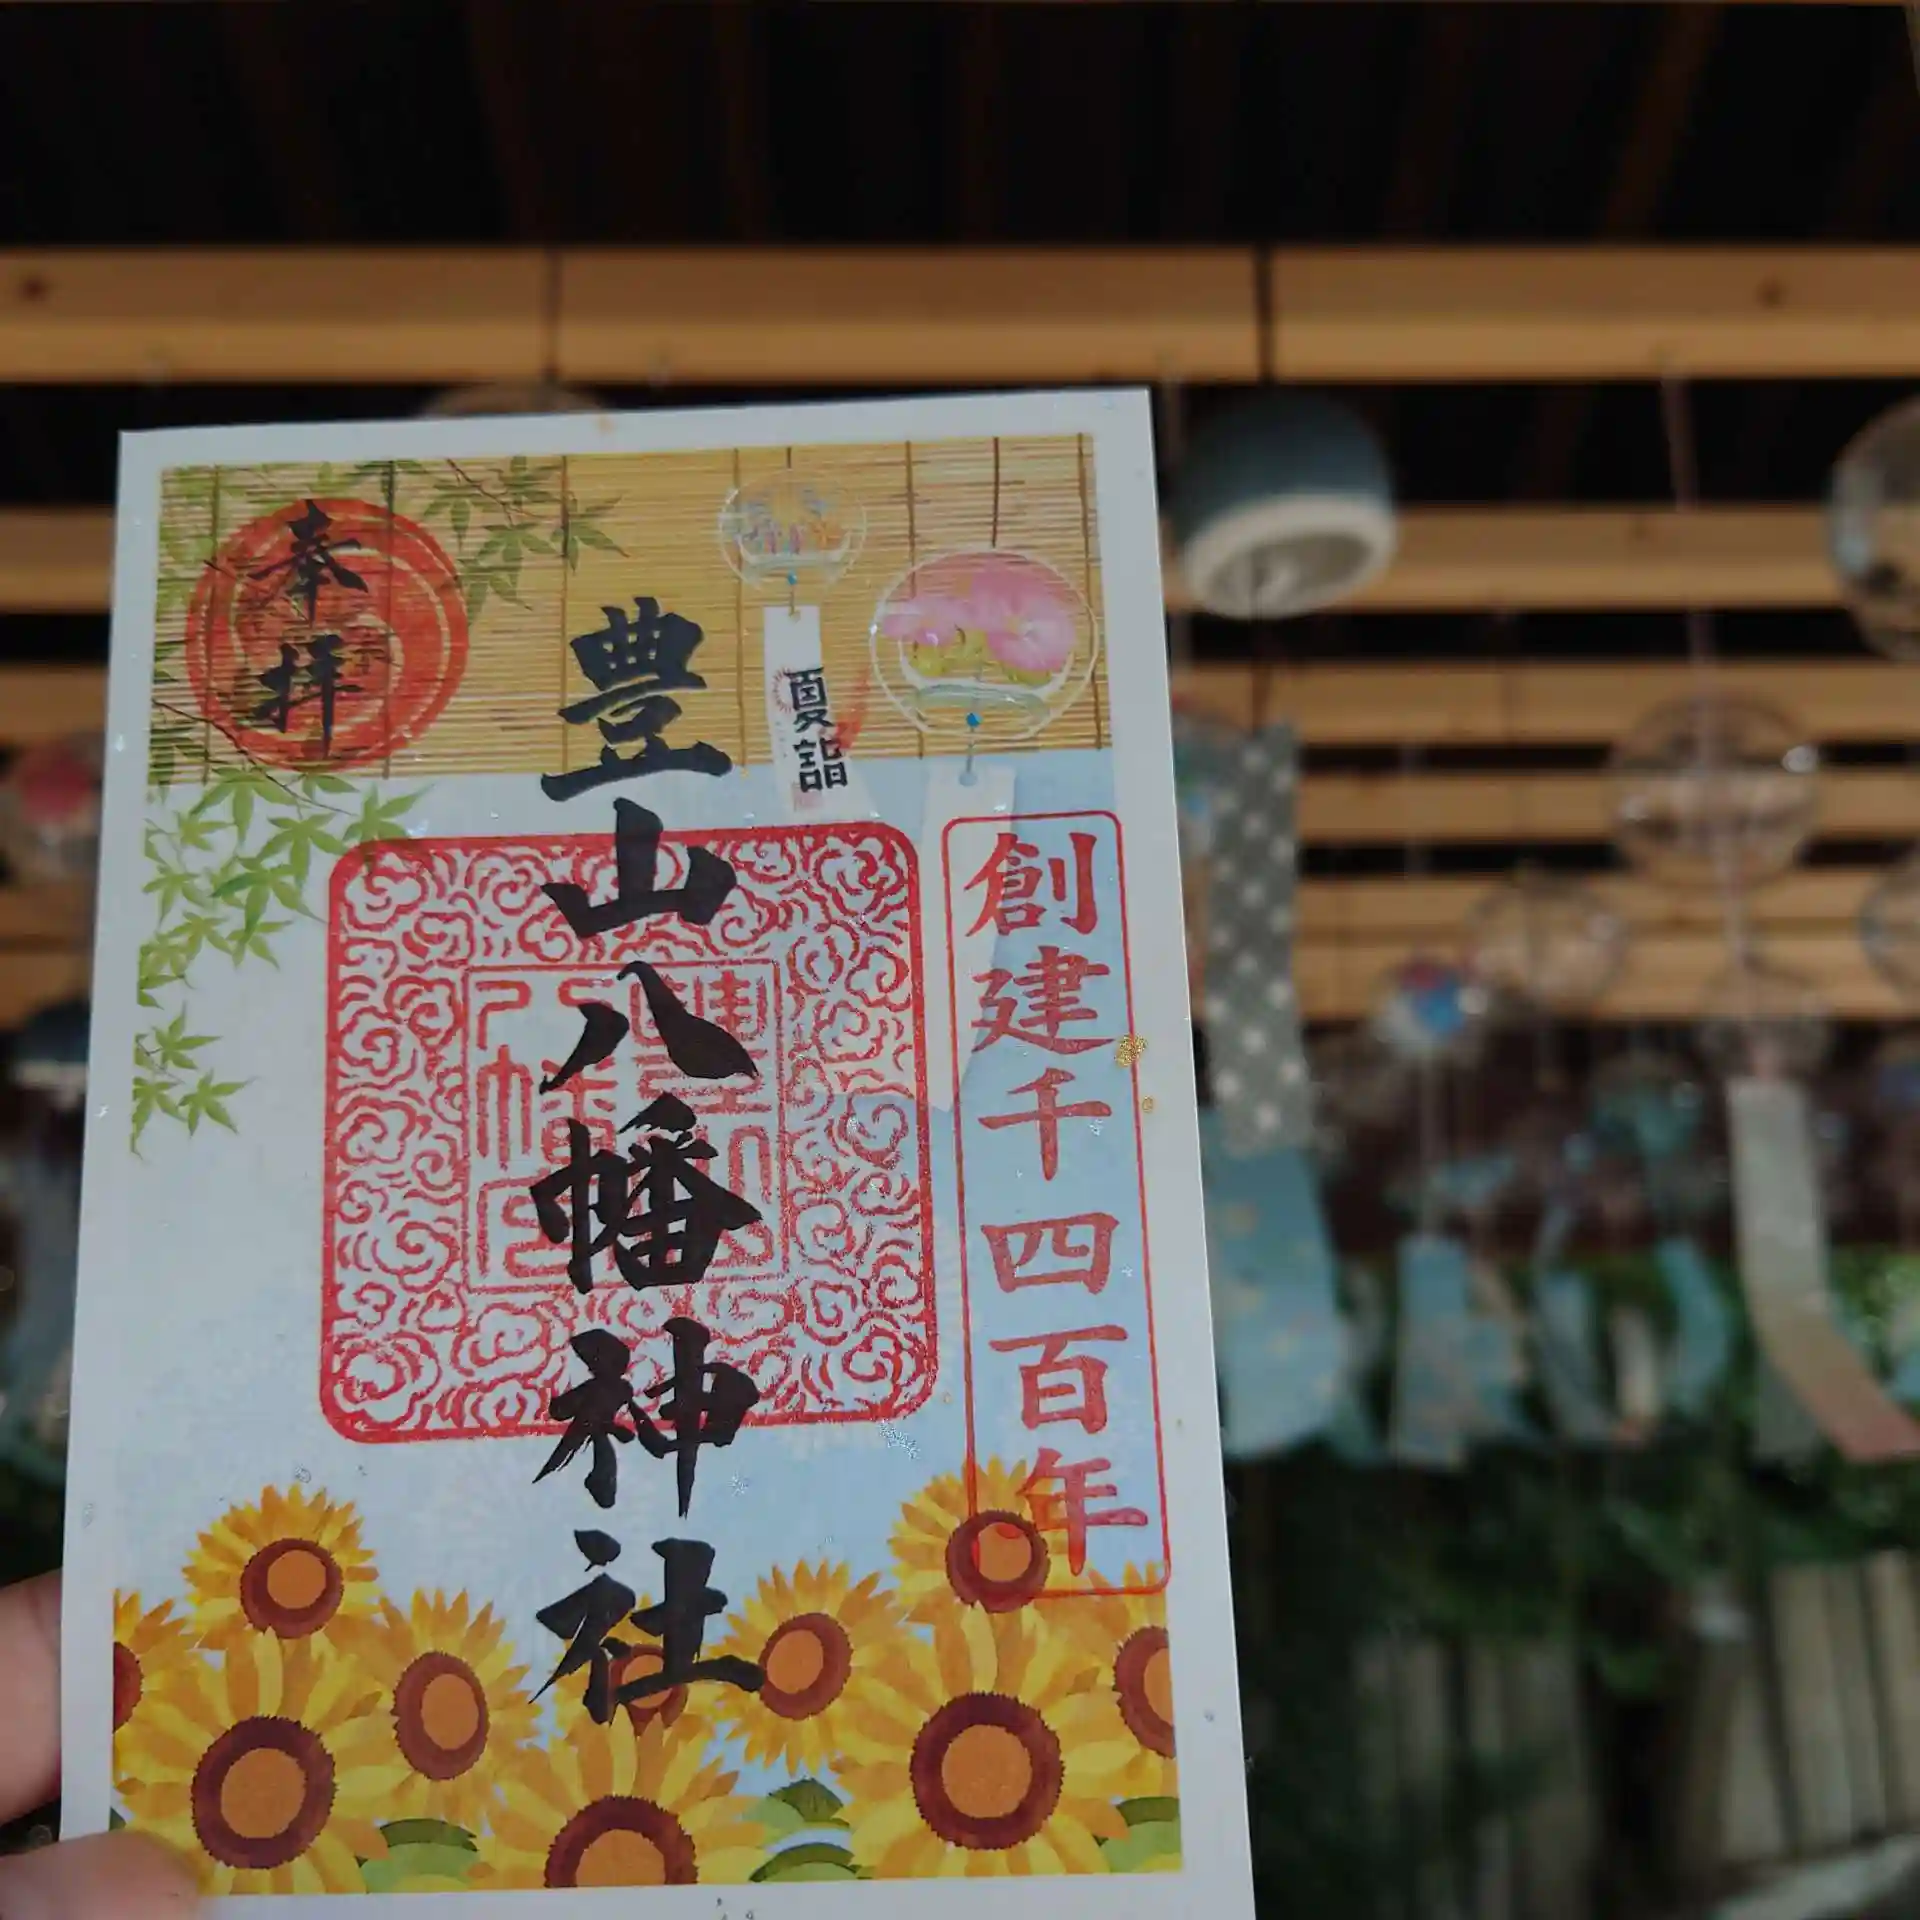 奉拝
豊山八幡神社
夏詣
創建千四百年